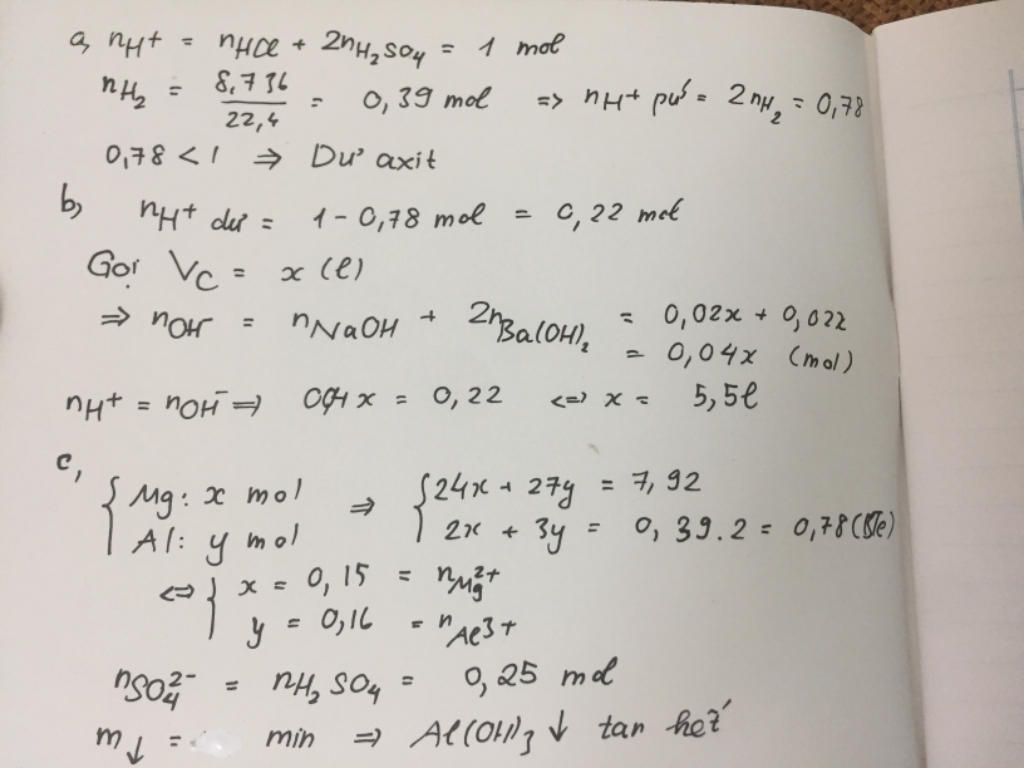 a, nH+ = nHCl + 2nH2SO4 = 1 mol
nH2 = 8,736/22,4 = 0,39 mol => nH+ pư = 2nH2 = 0,78
0,78 < 1 => Dư axit
b, nH+ dư = 1 - 0,78 mol = 0,22 mol
Gọi VC = x (l)
=> nOH- = nNaOH + 2nBa(OH)2 = 0,02x + 0,02x
= 0,04x (mol)
nH+ = nOH- => 0,04x = 0,22 <=> x = 5,5l
c,
{ Mg: x mol => { 24x + 27y = 7,92
Al: y mol 2x + 3y = 0,39.2 = 0,78 (BTe)
<=> { x = 0,15 = nMg2+
y = 0,16 = nAl3+
nSO42- = nH2SO4 = 0,25 mol
m↓ = min => Al(OH)3↓ tan hết